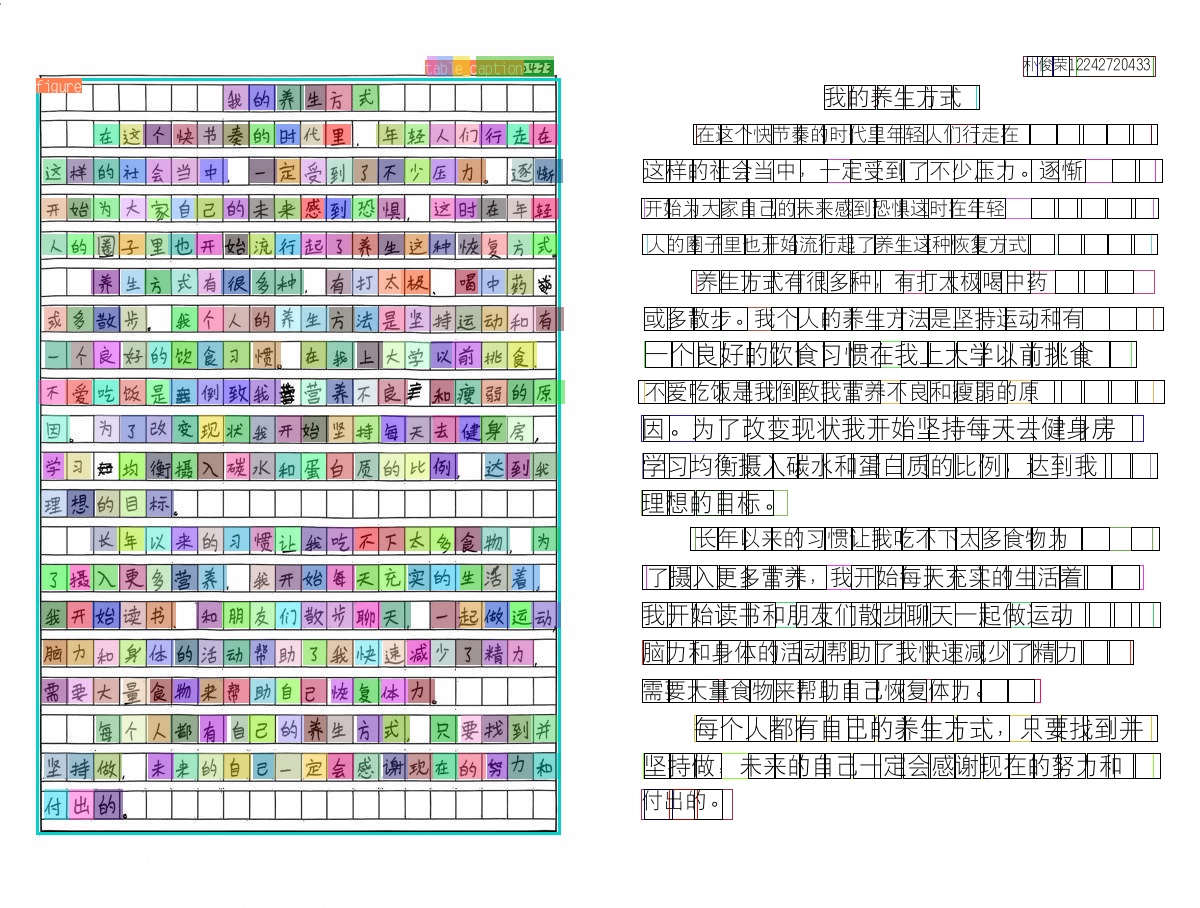 table_caption
figure
我的养生方式
在这个快书奏的时代里,年轻人们行走在
这样的社会当中,一定受到了不少压力。逐渐
开始为大家自己的未来感到恐惧,这时在年轻
人的圈子里也开始流行起了养生这种恢复方式。
养生方式有很多种,有打太极、喝中药
或多散步。我个人的养生方法是坚持运动和有
一个良好的饮食习惯。在我上大学以前挑食
不爱吃饭是倒致我营养不良和瘦弱的原
因。为了改变现状我开始坚持每天去健身房,
学习均衡摄入碳水和蛋白质的比例,达到我
理想的目标。
长年以来的习惯让我吃不下太多食物,为
了摄入更多营养,我开始每天充实的生活着,
我开始读书、和朋友们散步聊天,一起做运动,
脑力和身体的活动帮助了我快速减少了精力,
需要大量食物来帮助自己恢复体力。
每个人都有自己的养生方式,只要找到并
坚持做,未来的自己一定会感谢现在的努力和
付出的。
朴俊荣12242720433
我的养生方式
在这个快节奏的时代里年轻人们行走在
这样的社会当中，一定受到了不少压力。逐渐
开始为大家自己的未来感到恐惧这时在年轻
人的圈子里也开始流行起了养生这种恢复方式
养生方式有很多种，有打太极喝中药
或多散步。我个人的养生方法是坚持运动和有
一个良好的饮食习惯在我上大学以前挑食
不爱吃饭是我倒致我营养不良和瘦弱的原
因。为了改变现状我开始坚持每天去健身房
学习均衡摄入碳水和蛋白质的比例，达到我
理想的目标。
长年以来的习惯让我吃不下太多食物为
了摄入更多营养，我开始每天充实的生活着
我开始读书和朋友们散步聊天一起做运动
脑力和身体的活动帮助了我快速减少了精力
需要大量食物来帮助自己恢复体力。
每个人都有自己的养生方式，只要找到并
坚持做，未来的自己一定会感谢现在的努力和
付出的。